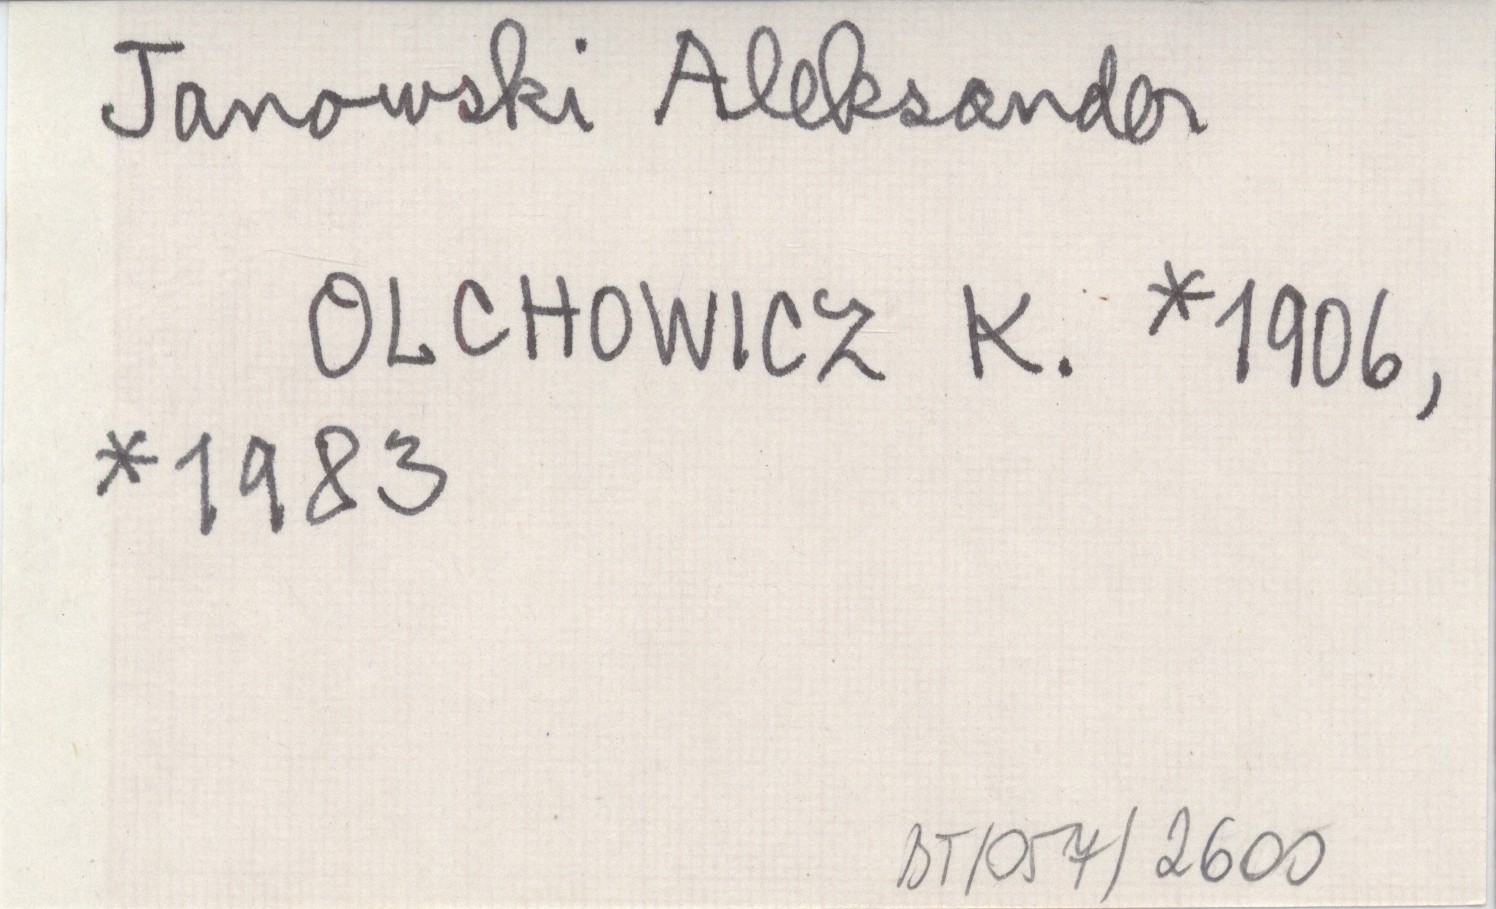 Janowski Aleksander
OLCHOWICZ K. *1906,
*1983
BT/057/2600